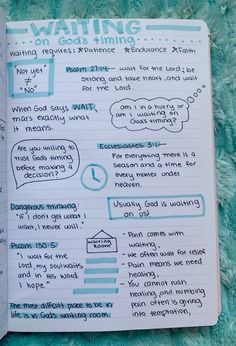 WAITING
on God's timing
Waiting requires: *Patience *Endurance *Faith
"Not yet"
≠
"NO"
Psalm 27:14 - wait for the Lord; be
strong and take heart, and wait
for the Lord.
When God says WAIT,
that's exactly what
it means.
Am I in a hurry or
am I waiting on
God's timing?
Are you willing to
trust God's timing
before making a
decision?
Ecclesiastes 3:1 -
For everything there is a
season and a time for
every matter under
heaven.
Dangerous thinking:
"If I don't get what I
want, I never will."
Usually God is waiting
on us!
Psalm 130:5
"I wait for the
Lord, my soul waits,
and in His Word
I hope."
waiting
room
- Pain comes with
waiting,
- We often wait for relief
- Pain means we need
healing,
- You cannot rush
healing, and numbing
pain often is giving
into temptation,
The most difficult place to be in
life is in God's waiting room.